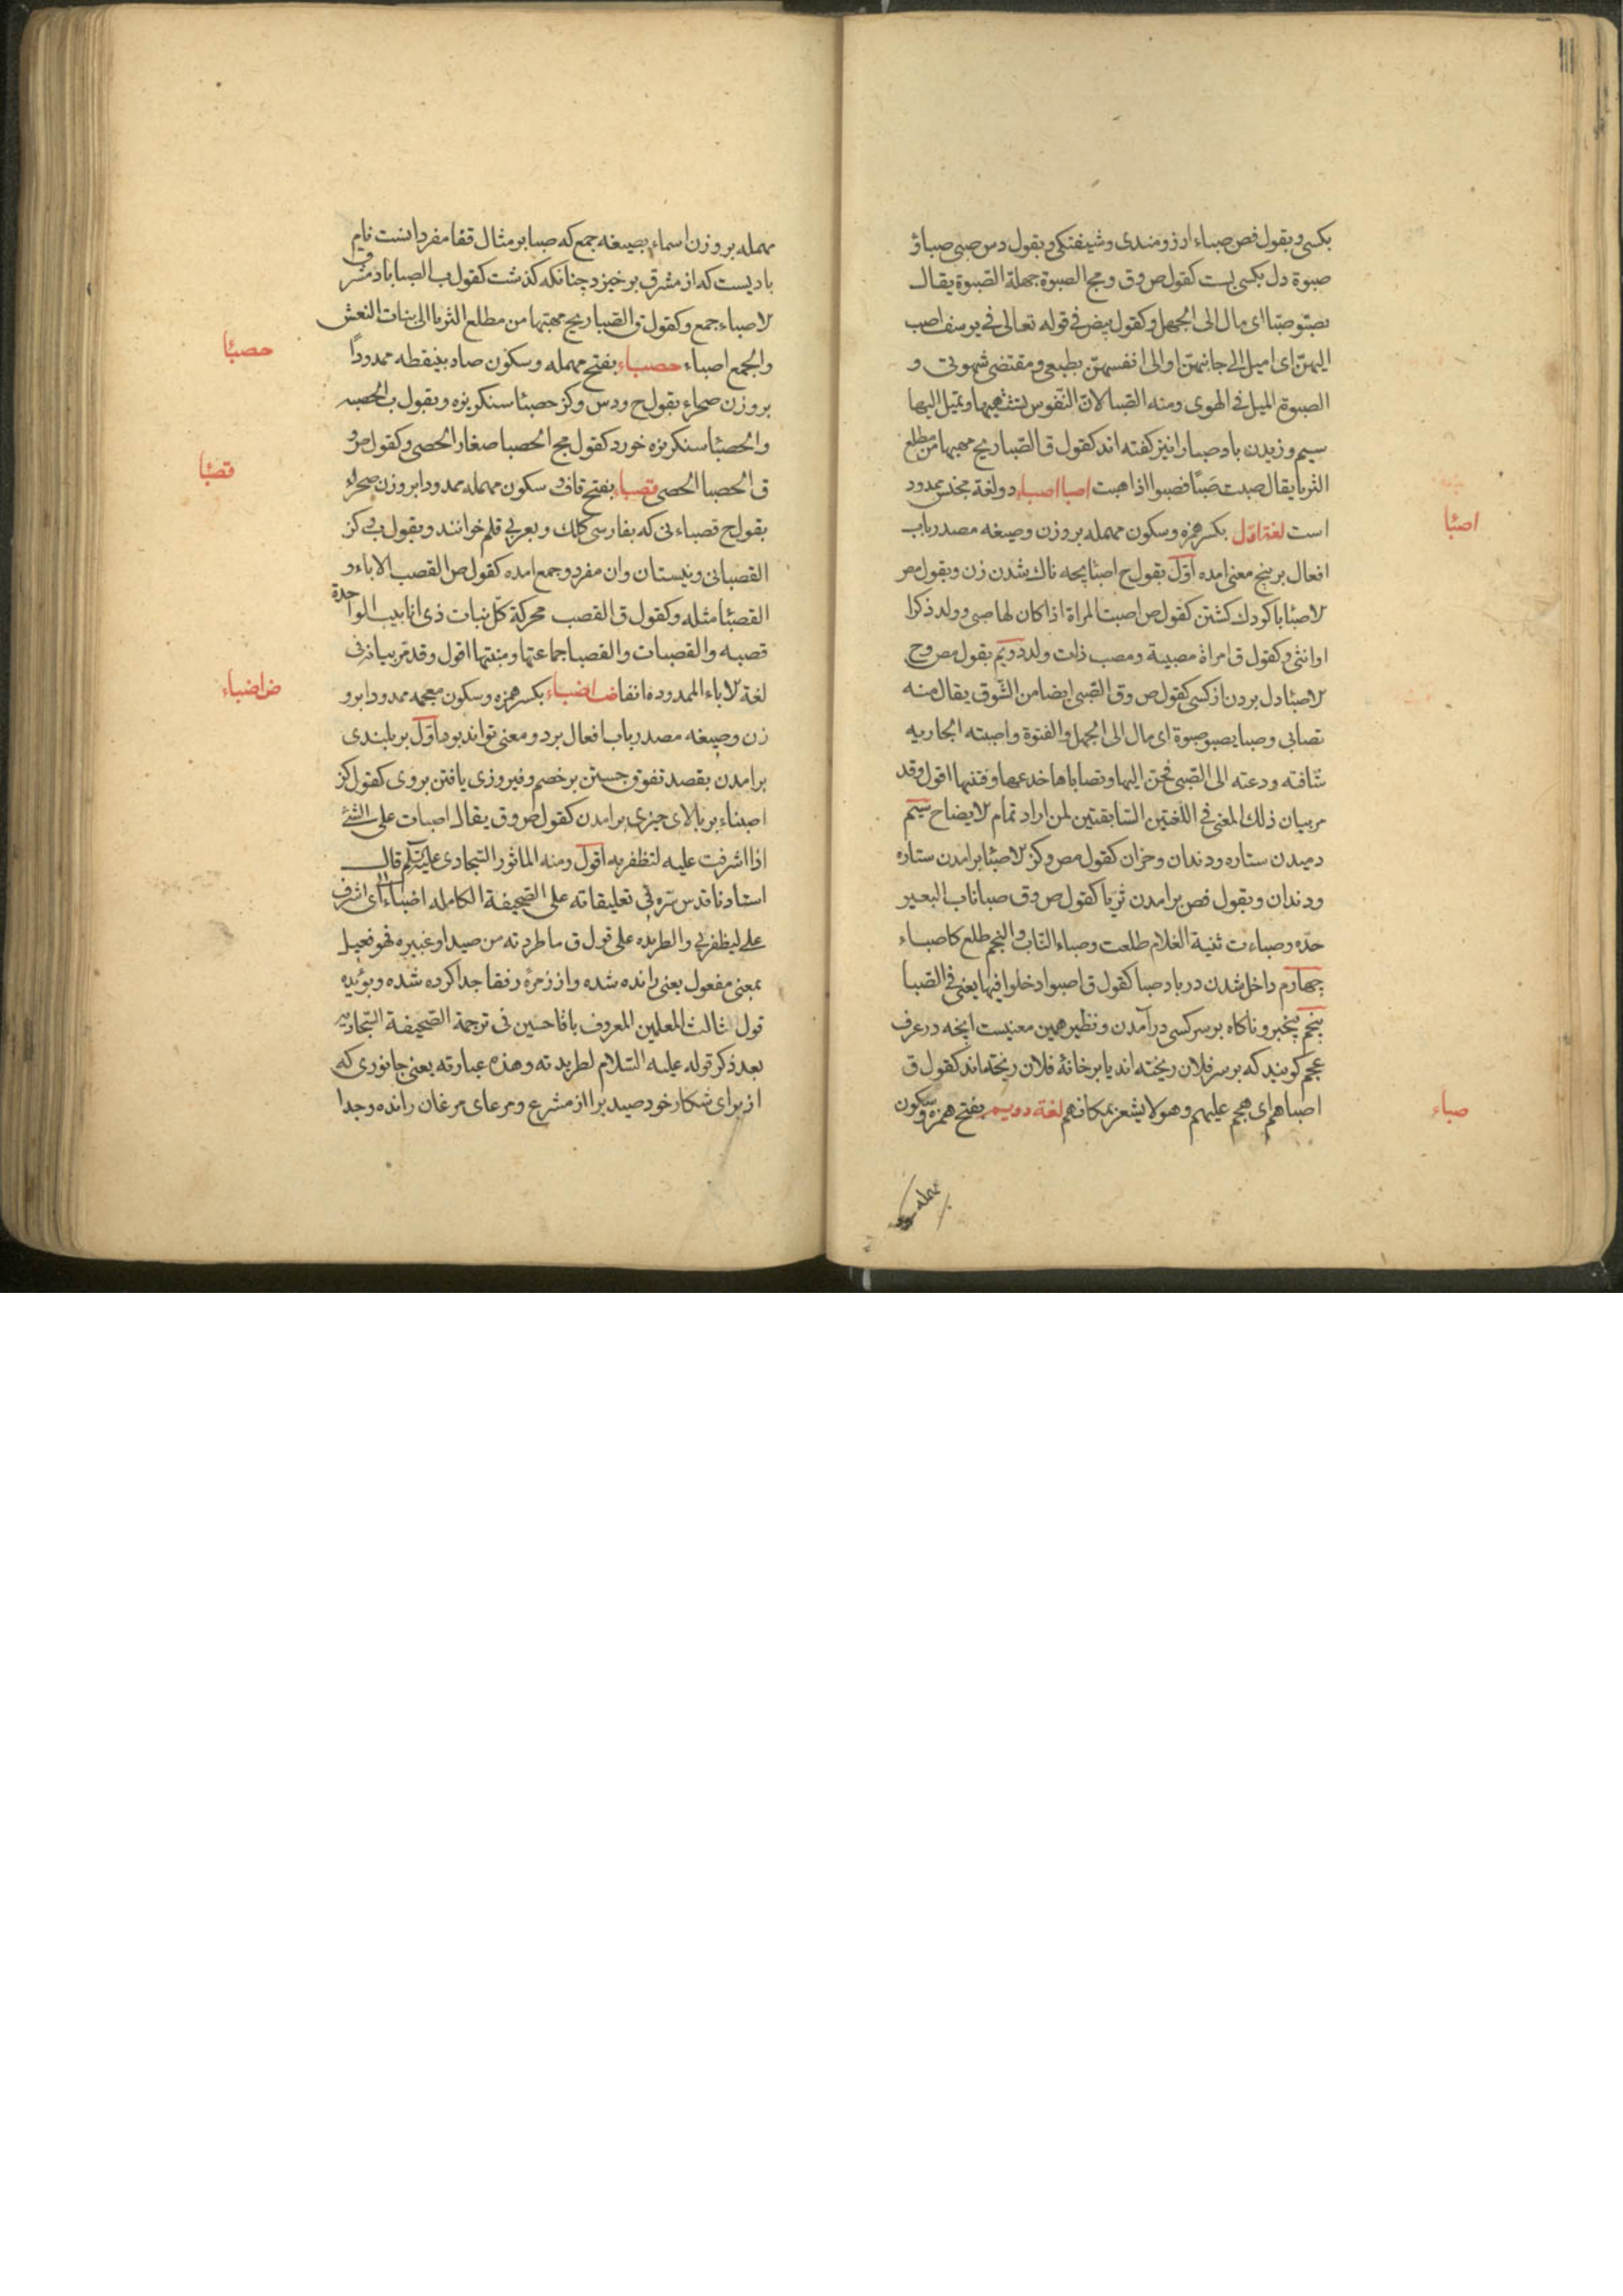 بکسی و بقول فص صباء ارزومندی و شیفتکی و بقول دس صبی صبا و
صبوة دل بکسی بست کقول ص و ق و مج الصبوة جهلة الصبوة یقال
الیهن ای امیل الی جانبهن او الی انفسهن بطبعی و مقتضی شهوتی و
الصبوة المیل فی الهوی و منه الصبا لان النفوس تمیل الیها
سیم وزیدن باد صبا را نیز کفته اند کقول ق الصبا ریح مهبها من مطلع
الثریا یقال صبت اصبا اصباء دو لغة ممدود
اصبا
است لغة اول بکسر همزه و سکون مهمله بر وزن و صیغه مصدر باب
افعال بر پنج معنی امده اول بقول ح اصبا بچه ناک شدن زن و بقول مص
لاصبا با کودک کشتن کقول ص اصبت المراة اذا کان لها صبی و ولد ذکرا
او انثی و کقول ق امراة مصبیة و مصب ذات ولد دویم بقول مص و ح
لاصبا دل بردن از کسی کقول ص و ق الصبی ایضا من الشوق یقال منه
تصابی و صبا یصبو صبوة ای مال الی الجهل و الفتوة و اصبته الجاریه
شاقته و دعته الی الصبی فحن الیها و تصاباها خدعها و فتنها اقول و قد
مر بیان ذلک المعنی فی اللغتین السابقتین لمن اراد تمام لایضاح سیم
دمیدن ستاره و دندان و جز ان کقول مص و کز لاصبا برامدن ستاره
و دندان و بقول فص برامدن ثریا کقول ص و ق صبا ناب البعیر
حده و صباءت ثنیة الغلام طلعت و صباء الناب و النجم طلع کاصباء
چهارم داخل شدن در باد صبا کقول ق اصبوا دخلوا فیها یعنی فی الصبا
پنجم بیخبر و ناکاه بر سر کسی درآمدن و نظیر همین معنیست اینچه در عرف
عجم کویند که بر سر فلان ریخته اند یا بر خانهٔ فلان ریخته اند کقول ق
اصباهم ای هجم علیهم و هو لا یشعر بمکانهم لغة دویم بفتح همزه و سکون
صباء
مهمله بر وزن اسماء بصیغه جمع که صبا بر مثال قفا مفرد انست نام
بادیست که از مشرق بر خیزد چنانکه کذشت کقول ب الصبا باد مشرق
لاصباء جمع و کقول ق الصبا ریح مهبها من مطلع الثریا الی بنات النعش
حصبا
والجمع اصباء حصباء بفتح مهمله و سکون صاد بینقطه ممدودا
بر وزن صحراء بقول ح و دس و کز حصبا سنکریزه و بقول ب الحصبه
والحصبا سنکریزه خورد کقول مج الحصبا صغار الحصی و کقول ص و
قصبا
ق الحصبا الحصی قصباء بفتح قاف و سکون مهمله ممدودا بر وزن صحراء
بقول ح قصباء نی که بفارسی کلک و بعربی قلم خوانند و بقول ب و کز
القصبا نی و نیستان و ان مفرد و جمع امده کقول ص القصب الاباء و
القصبا مثله و کقول ق القصب محرکة کل نبات ذی انابیب الواحدة
قصبه و القصبات و القصبا جماعتها و منبتها اقول و قد مر بیانه فی
ض اضباء
لغة لاباء الممدوده انفا ض اضباء بکسر همزه و سکون معجمه ممدودا بر و
زن و صیغه مصدر باب افعال بر دو معنی تواند بود اول بر بلندی
برامدن بقصد تفوق جستن بر خصم و فیروزی یافتن بر وی کقول کز
اضباء بر بالای چیزی برامدن کقول ص و ق یقال اضبات علی الشئ
اذا اشرفت علیه لتظفر به اقول و منه الماثور السجادی علیه السلم قال
استادنا قدس سره فی تعلیقاته علی الصحیفة الکامله اضباء ای اشرف
علی لیظفر بی و الطریده علی قول ق ما طردته من صید او غیره فهو فعیل
بمعنی مفعول یعنی رانده شده و از زمرهٔ رفقا جدا کرده شده و یؤیده
قول ثالث المعلمین المعروف باقا حسین فی ترجمة الصحیفة السجادیه
بعد ذکر قوله علیه السلام لطریدته و هذه عبارته یعنی جانوری که
از برای شکار خود صید را از مشرع و مرعای مرغان رانده و جدا